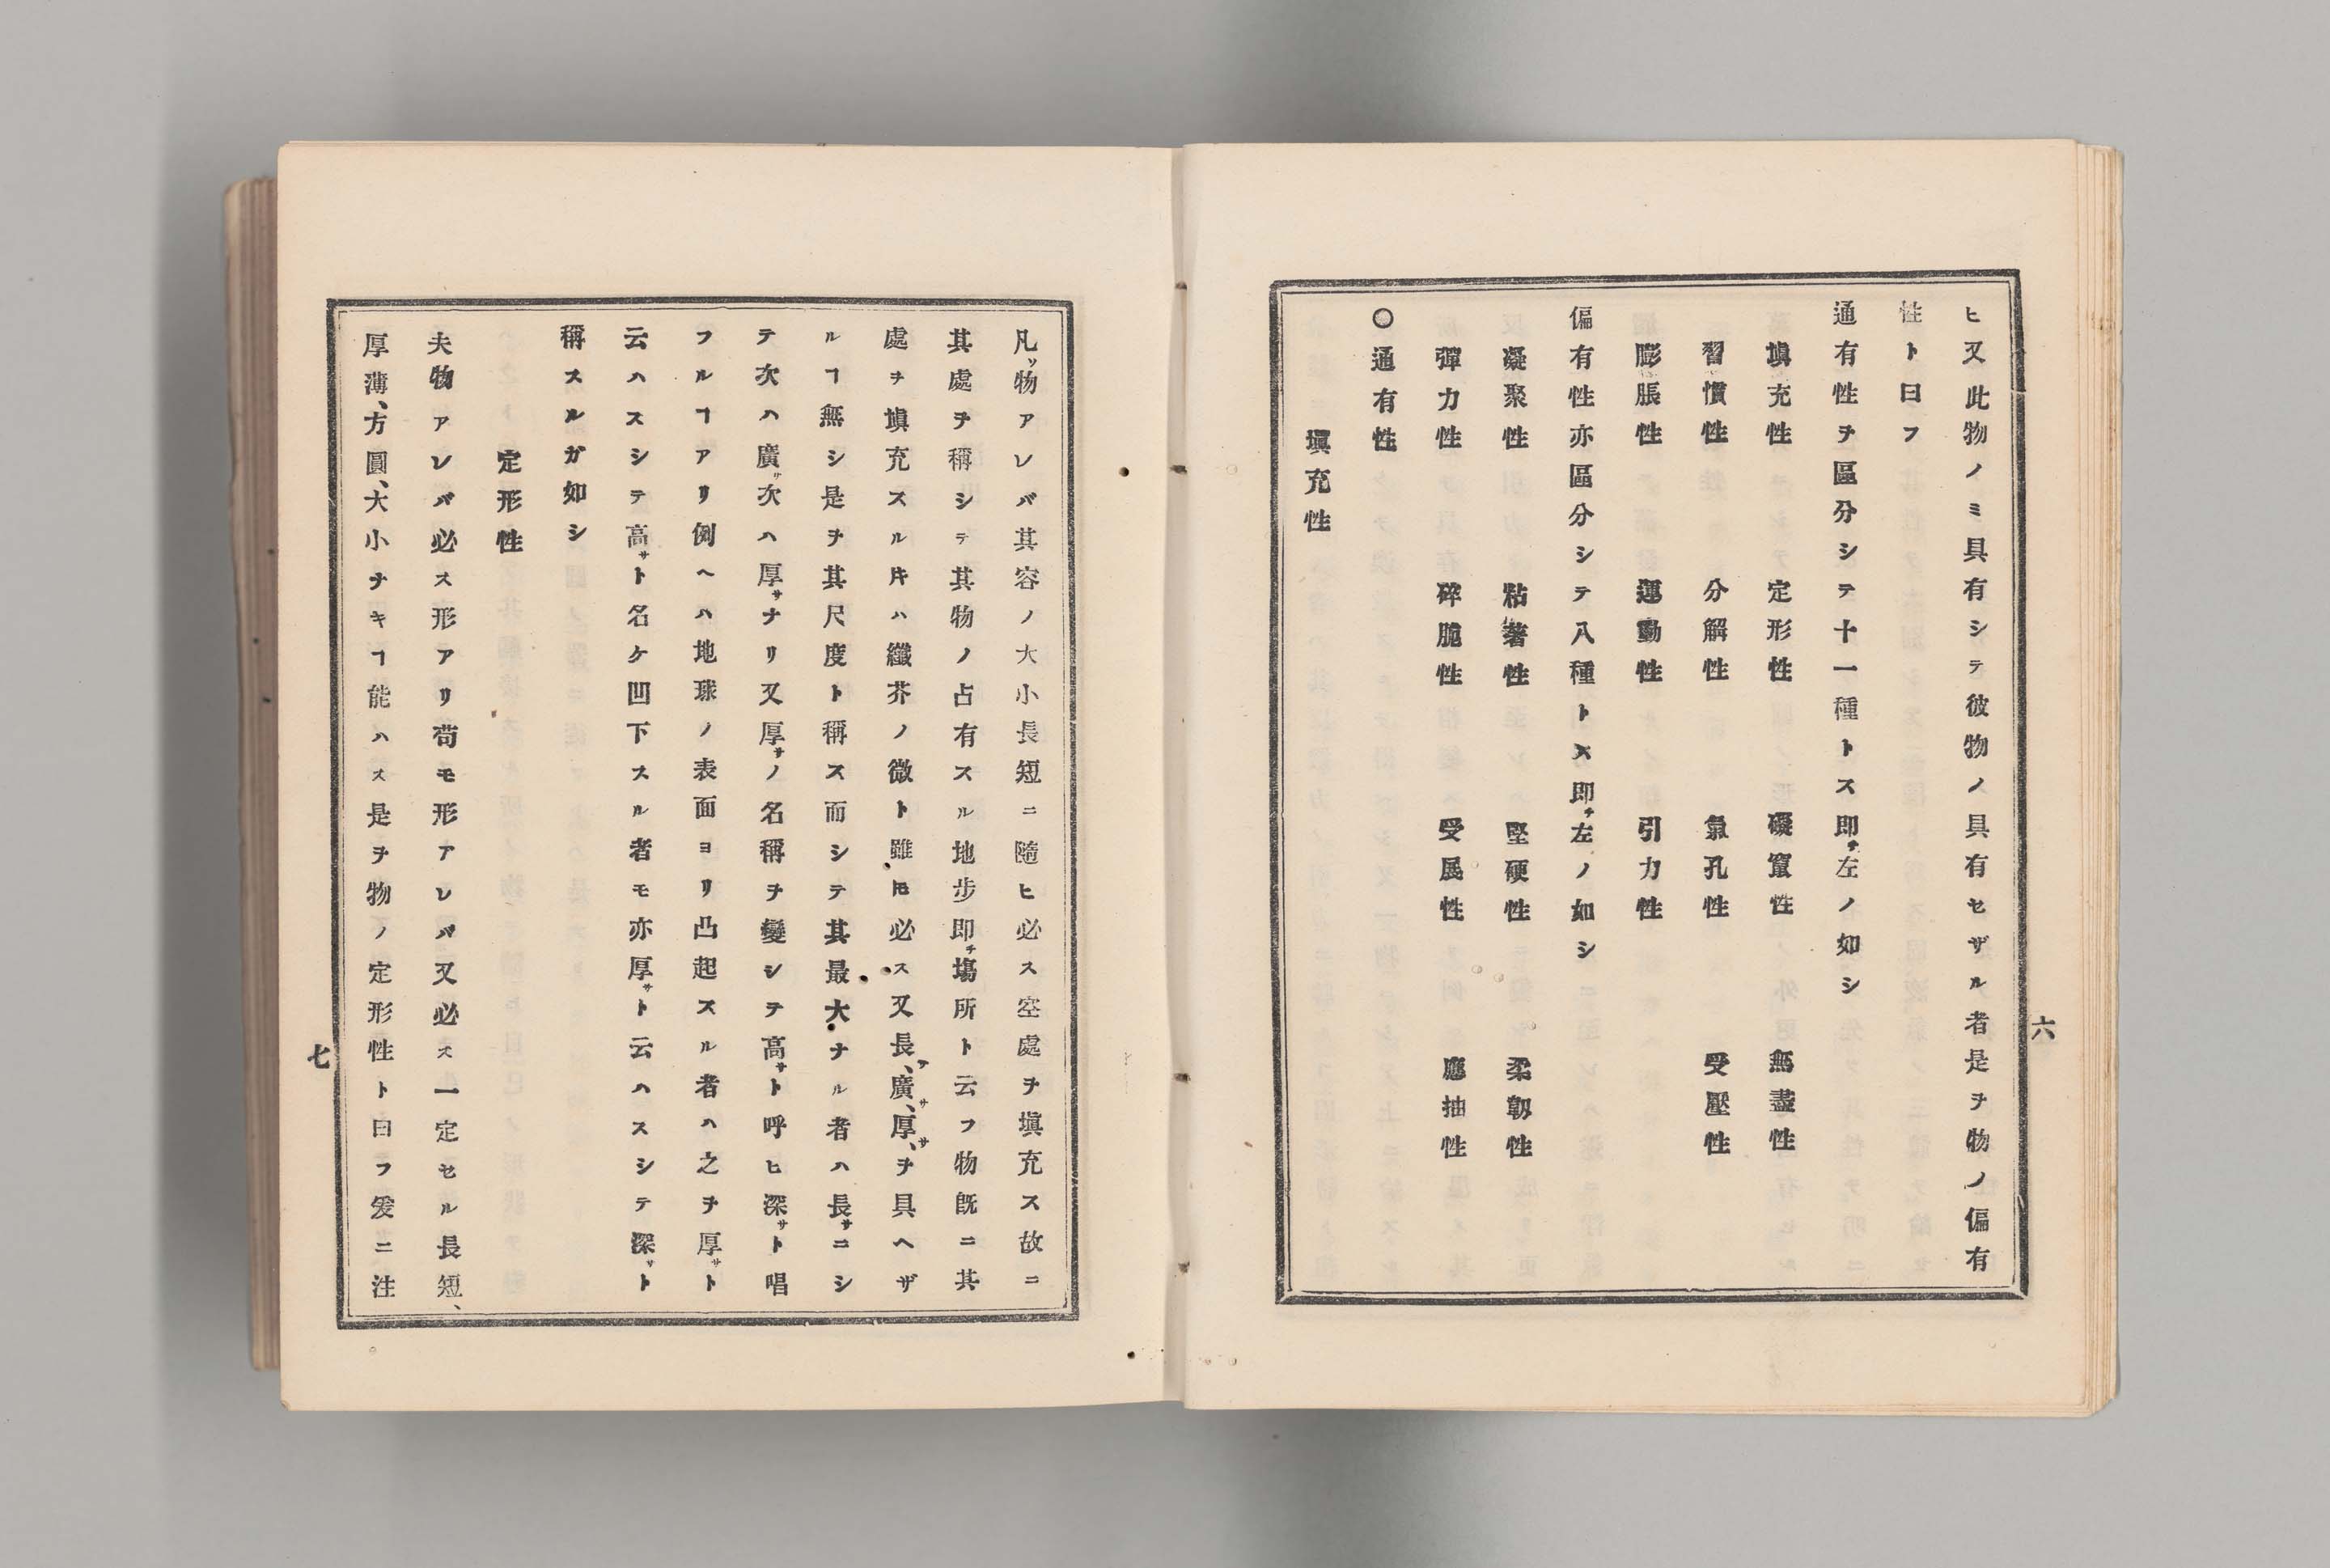 ヒ又此物ノミ具有シテ彼物ノ具有セザル者是ヲ物ノ偏有
性ト曰フ
通有性ヲ區分シテ十一種トス即チ左ノ如シ
塡充性 定形性 礙竄性 無盡性
習慣性 分解性 氣孔性 受壓性
膨脹性 運動性 引力性
偏有性亦區分シテ八種トス即チ左ノ如シ
凝聚性 粘著性 堅硬性 柔韌性
彈力性 碎脆性 受展性 應抽性
〇通有性
塡充性
六
凡ソ物アレバ其容ノ大小長短ニ隨ヒ必ス空處ヲ塡充ス故ニ
其處ヲ稱シテ其物ノ占有スル地步即チ塲所ト云フ物旣ニ其
處ヲ塡充スル片ハ纖芥ノ微ト雖𪜈必ス又長サ、廣サ、厚サ、ヲ具ヘザ
ルヿ無シ是ヲ其尺度ト稱ス而シテ其最大ナル者ハ長サニシ
テ次ハ廣サ次ハ厚サナリ又厚サノ名稱ヲ變シテ高サト呼ヒ深サト唱
フルヿアリ例ヘハ地球ノ表面ヨリ凸起スル者ハ之ヲ厚サト
云ハスシテ高サト名ケ凹下スル者モ亦厚サト云ハスシテ深サト
稱スルガ如シ
定形性
夫物アレバ必ス形アリ苟モ形アレバ又必ス一定セル長短、
厚薄、方圓、大小ナキヿ能ハス是ヲ物ノ定形性ト曰フ爰ニ注
七